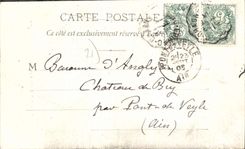 CARTE POSTALE
Ce côté est exclusivement réservé à l'
M Baronne d'Angly
Chateau de Bey
par Pont de Veyle
(Ain)
PONT-DE-VEYLE
AIN